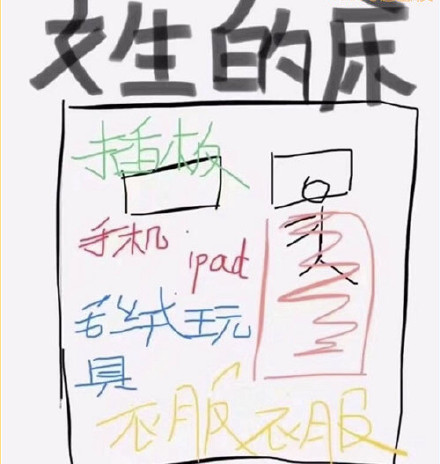 女生的床
插板
手机 ipad
毛绒玩
具
衣服衣服